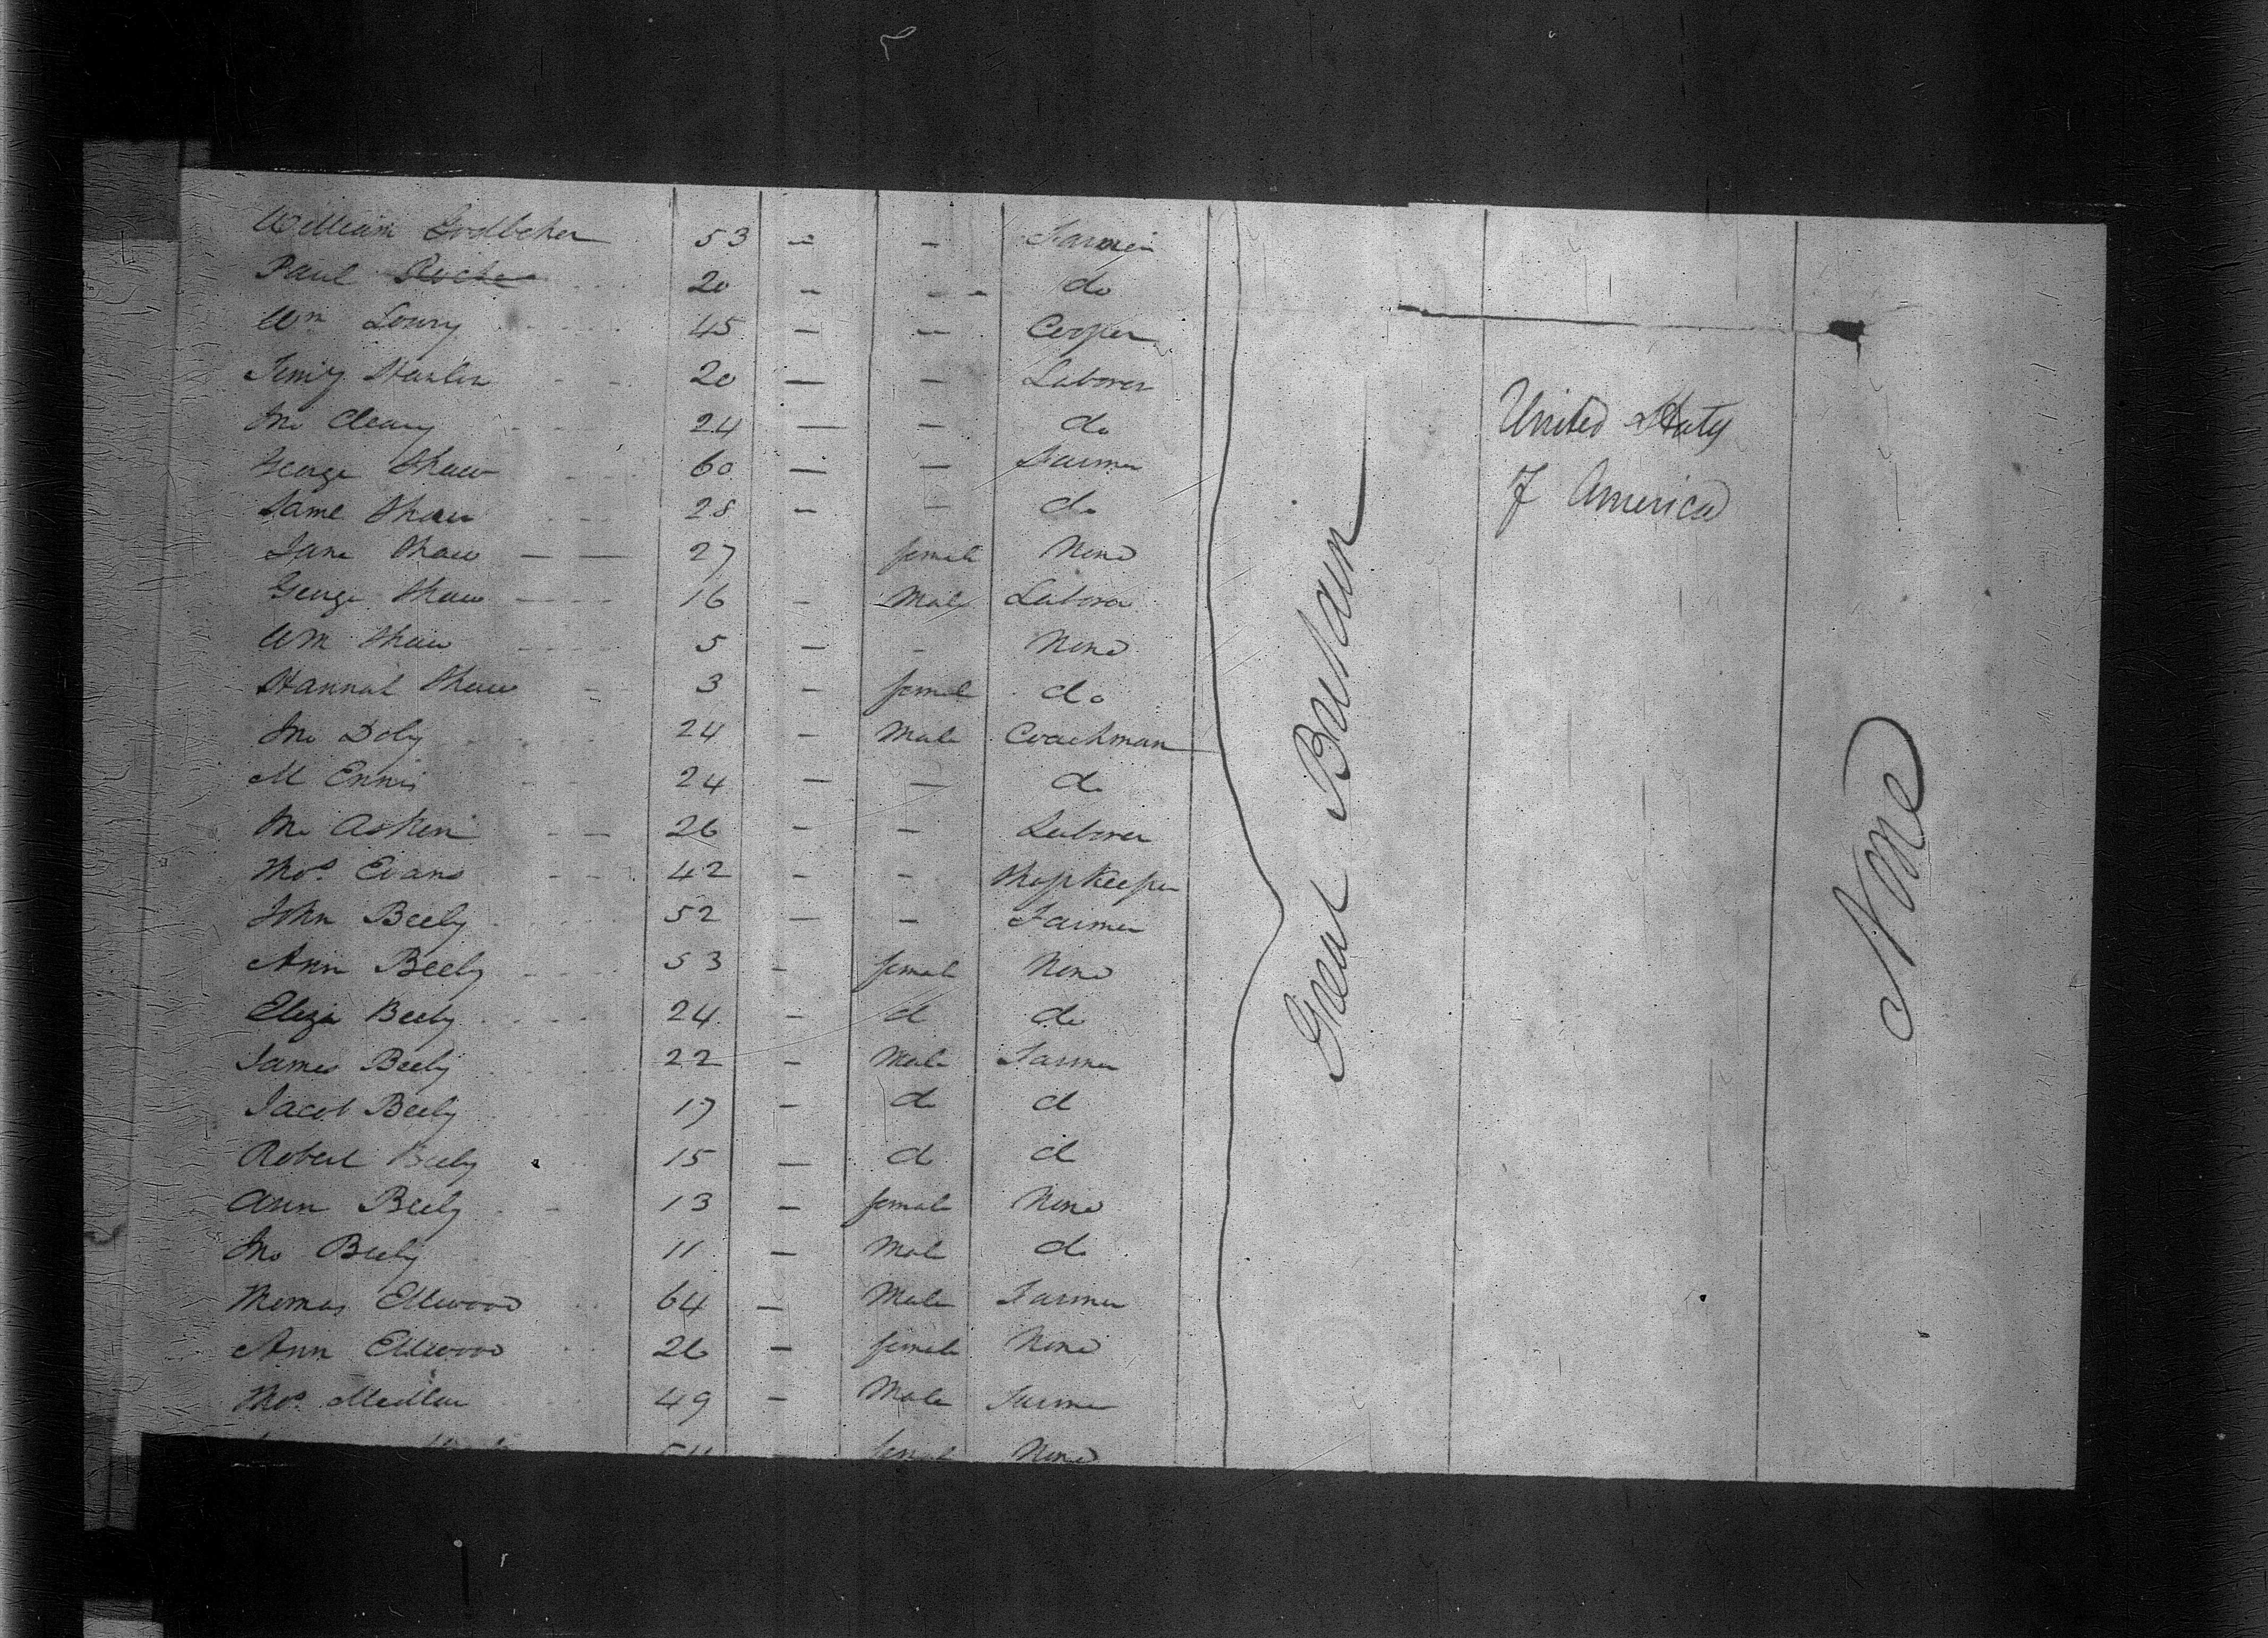 William 53 - - Farmer
Paul Roche 20 - - do
Wm Lowry 45 - - Cooper
20 - - Laborer
Jno Cleary 24 - - do
George Shaw 60 - - Farmer
Shaw 28 - - do
Jane Shaw 27 female None
George Shaw 16 - Male Laborer
Wm Shaw 5 - - None
Hannah Shaw 3 - female do
Jno Doby 24 - Male Coachman
M Ennis 24 - - do
Jno Askin 26 - - Laborer
Thos Evans 42 - - Shopkeeper
John Beeby 52 - - Farmer
Ann Beeby 53 - female None
Eliza Beeby 24 - d do
James Beeby 22 - Male Farmer
Jacob Beeby 17 - d d
Robert Beeby 15 - d d
Ann Beeby 13 - female None
Jno Beeby 11 - Male do
Thomas Ellwood 64 - Male Farmer
Ann Ellwood 26 - female None
Thos 49 - Male Farmer
female None
Great Britain
United States
of America
None